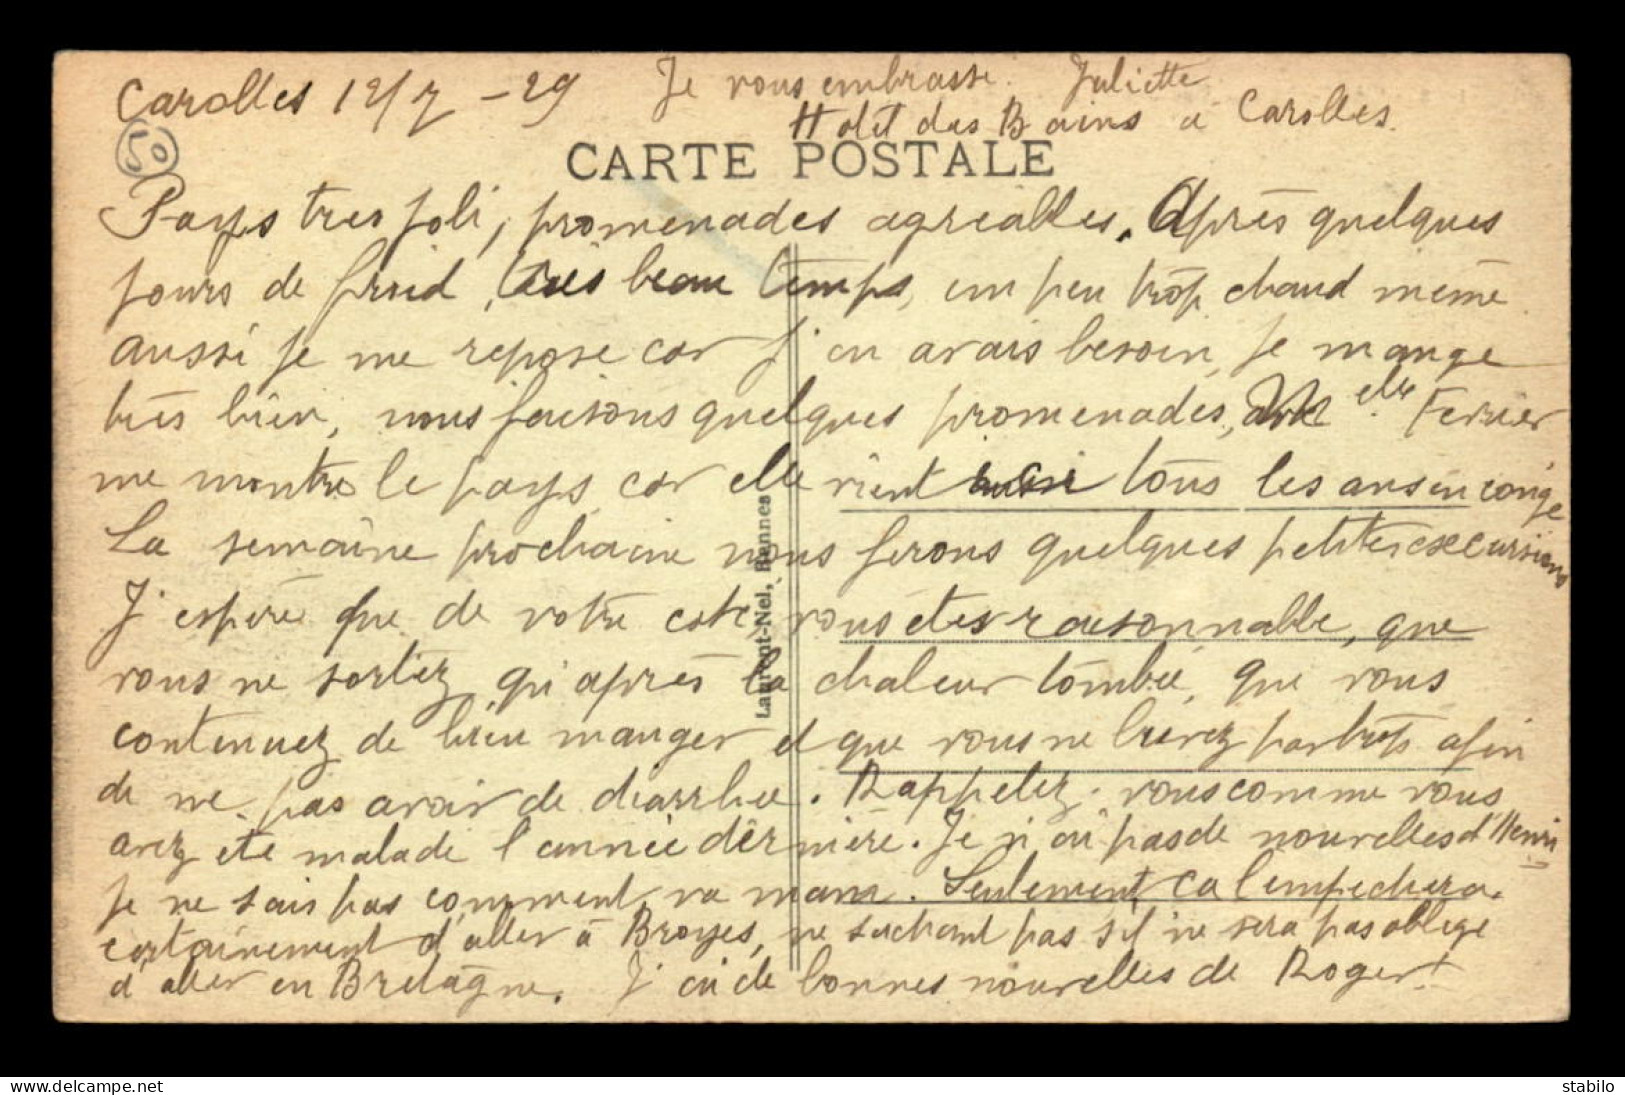 Carolles 12/7 - 29 Je vous embrasse. Juliette
Hotel des Bains à Carolles.
50
CARTE POSTALE
Pays tres joli, promenades agréables. Après quelques
jours de froid, très beau temps, un peu trop chaud même
aussi je me repose car j'en avais besoin, je mange
très bien, nous faisons quelques promenades, Melle Ferrier
me montre le pays car elle vient ici tous les ans en congé
La semaine prochaine nous ferons quelques petites excursions
J'espère que de votre coté, vous êtes raisonnable, que
vous ne sortez qu'après la chaleur tombée, que vous
continuez de bien manger et que vous ne buvez pas trop afin
de ne pas avoir de diarrhée. Rappelez-vous comme vous
avez été malade l'année dernière. Je n'ai pas de nouvelles d'Henri
je ne sais pas comment va mam. Seulement ca l'empechera
certainement d'aller à Broyes, ne sachant pas s'il ne sera pas oblige
d'aller en Bretagne. J'ai de bonnes nouvelles de Roger.
Laurent-Nel, Rennes
delcampe.net
stabilo